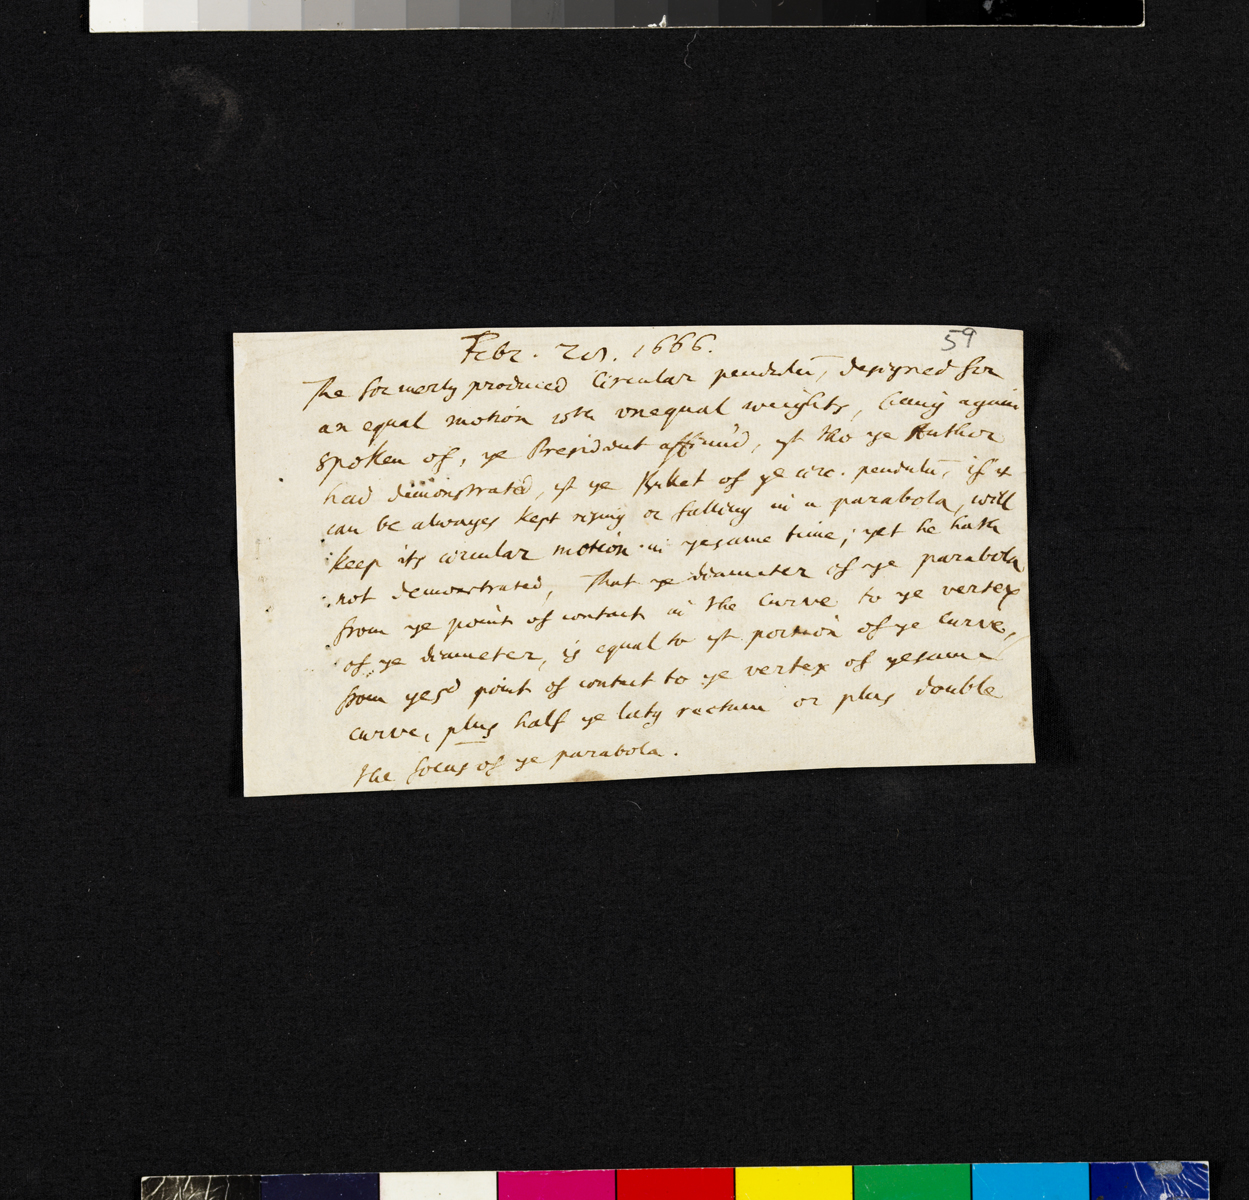 59
Febr. 20. 1666.
The formerly produced Circular pendulū, designed for
an equal motion wth vnequal weights, being again
spoken of, ye President affirm'd, yt tho ye Author
had demonstrated, yt ye Bullet of ye circ. pendulū, if it
can be always kept rising or falling in a parabola, will
keep its circular motion in ye same time; yet he hath
not demonstrated, That ye diameter of ye parabola
from ye point of contact in the Curve to ye vertex
of ye diameter, is equal to yt portion of ye Curve,
from ye sd point of contact to ye vertex of ye same
curve, plus half ye latus rectum or plus double
the focus of ye parabola.